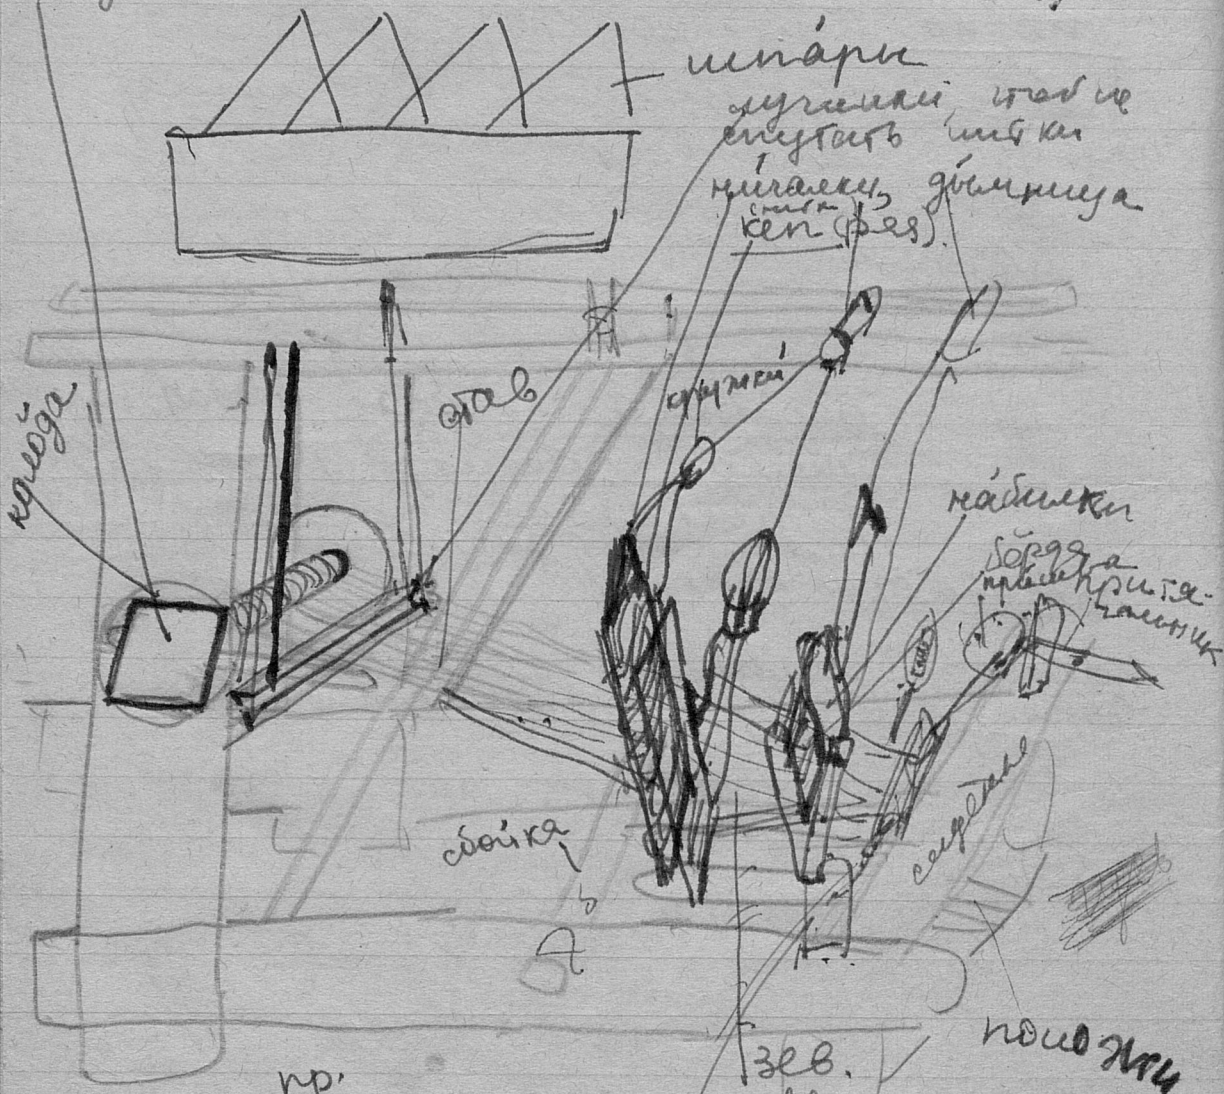 шпа́ры
лучинки, чтоб не
спутать нитки
ни́чалки, ды́мница
нитки
кеп (рея).
колода
став
кружки́
на́билки
бёрда
притя-
чальник
сбойка
сиденье
поножи
зев.
пр.